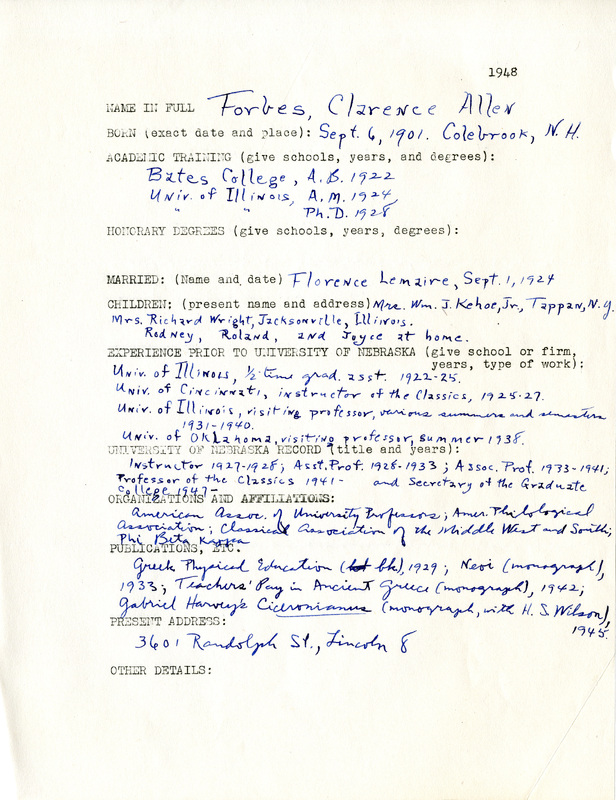 1948
NAME IN FULL Forbes, Clarence Allen
BORN (exact date and place): Sept. 6, 1901. Colebrook, N.H.
ACADEMIC TRAINING (give schools, years, and degrees):
Bates College, A.B. 1922
Univ. of Illinois, A.M. 1924,
" " Ph.D. 1928
HONORARY DEGREES (give schools, years, degrees):
MARRIED: (Name and date) Florence Lemaire, Sept. 1, 1924
CHILDREN: (present name and address) Mrs. Wm. J. Kehoe, Jr., Tappan, N.Y.
Mrs. Richard Wright, Jacksonville, Illinois.
Rodney, Roland, and Joyce at home.
EXPERIENCE PRIOR TO UNIVERSITY OF NEBRASKA (give school or firm,
years, type of work):
Univ. of Illinois, ½-time grad. asst. 1922-25.
Univ. of Cincinnati, instructor of the Classics, 1925-27.
Univ. of Illinois, visiting professor, various summers and semesters
1931-1940.
Univ. of Oklahoma, visiting professor, summer 1938.
UNIVERSITY OF NEBRASKA RECORD (title and years):
Instructor 1927-1928; Asst. Prof. 1928-1933; Assoc. Prof. 1933-1941;
Professor of the Classics 1941- and Secretary of the Graduate
College 1947-
ORGANIZATIONS AND AFFILIATIONS:
American Assoc. of University Professors; Amer. Philological
Association; Classical Association of the Middle West and South;
Phi Beta Kappa
PUBLICATIONS, ETC.
Greek Physical Education (bk), 1929; Neoi (monograph),
1933; Teachers' Pay in Ancient Greece (monograph), 1942;
Gabriel Harvey's Ciceronianus (monograph, with H. S. Wilson),
1945.
PRESENT ADDRESS:
3601 Randolph St., Lincoln 8
OTHER DETAILS: